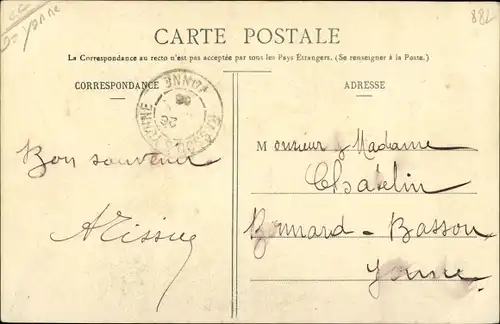 Yonne
882
CARTE POSTALE
La Correspondance au recto n'est pas acceptée par tous les Pays Etrangers. (Se renseigner à la Poste.)
CORRESPONDANCE
ADRESSE
YONNE
26
08
Bon souvenir
Monsieur & Madame
Chatelin
Bernard-Basson
Yonne